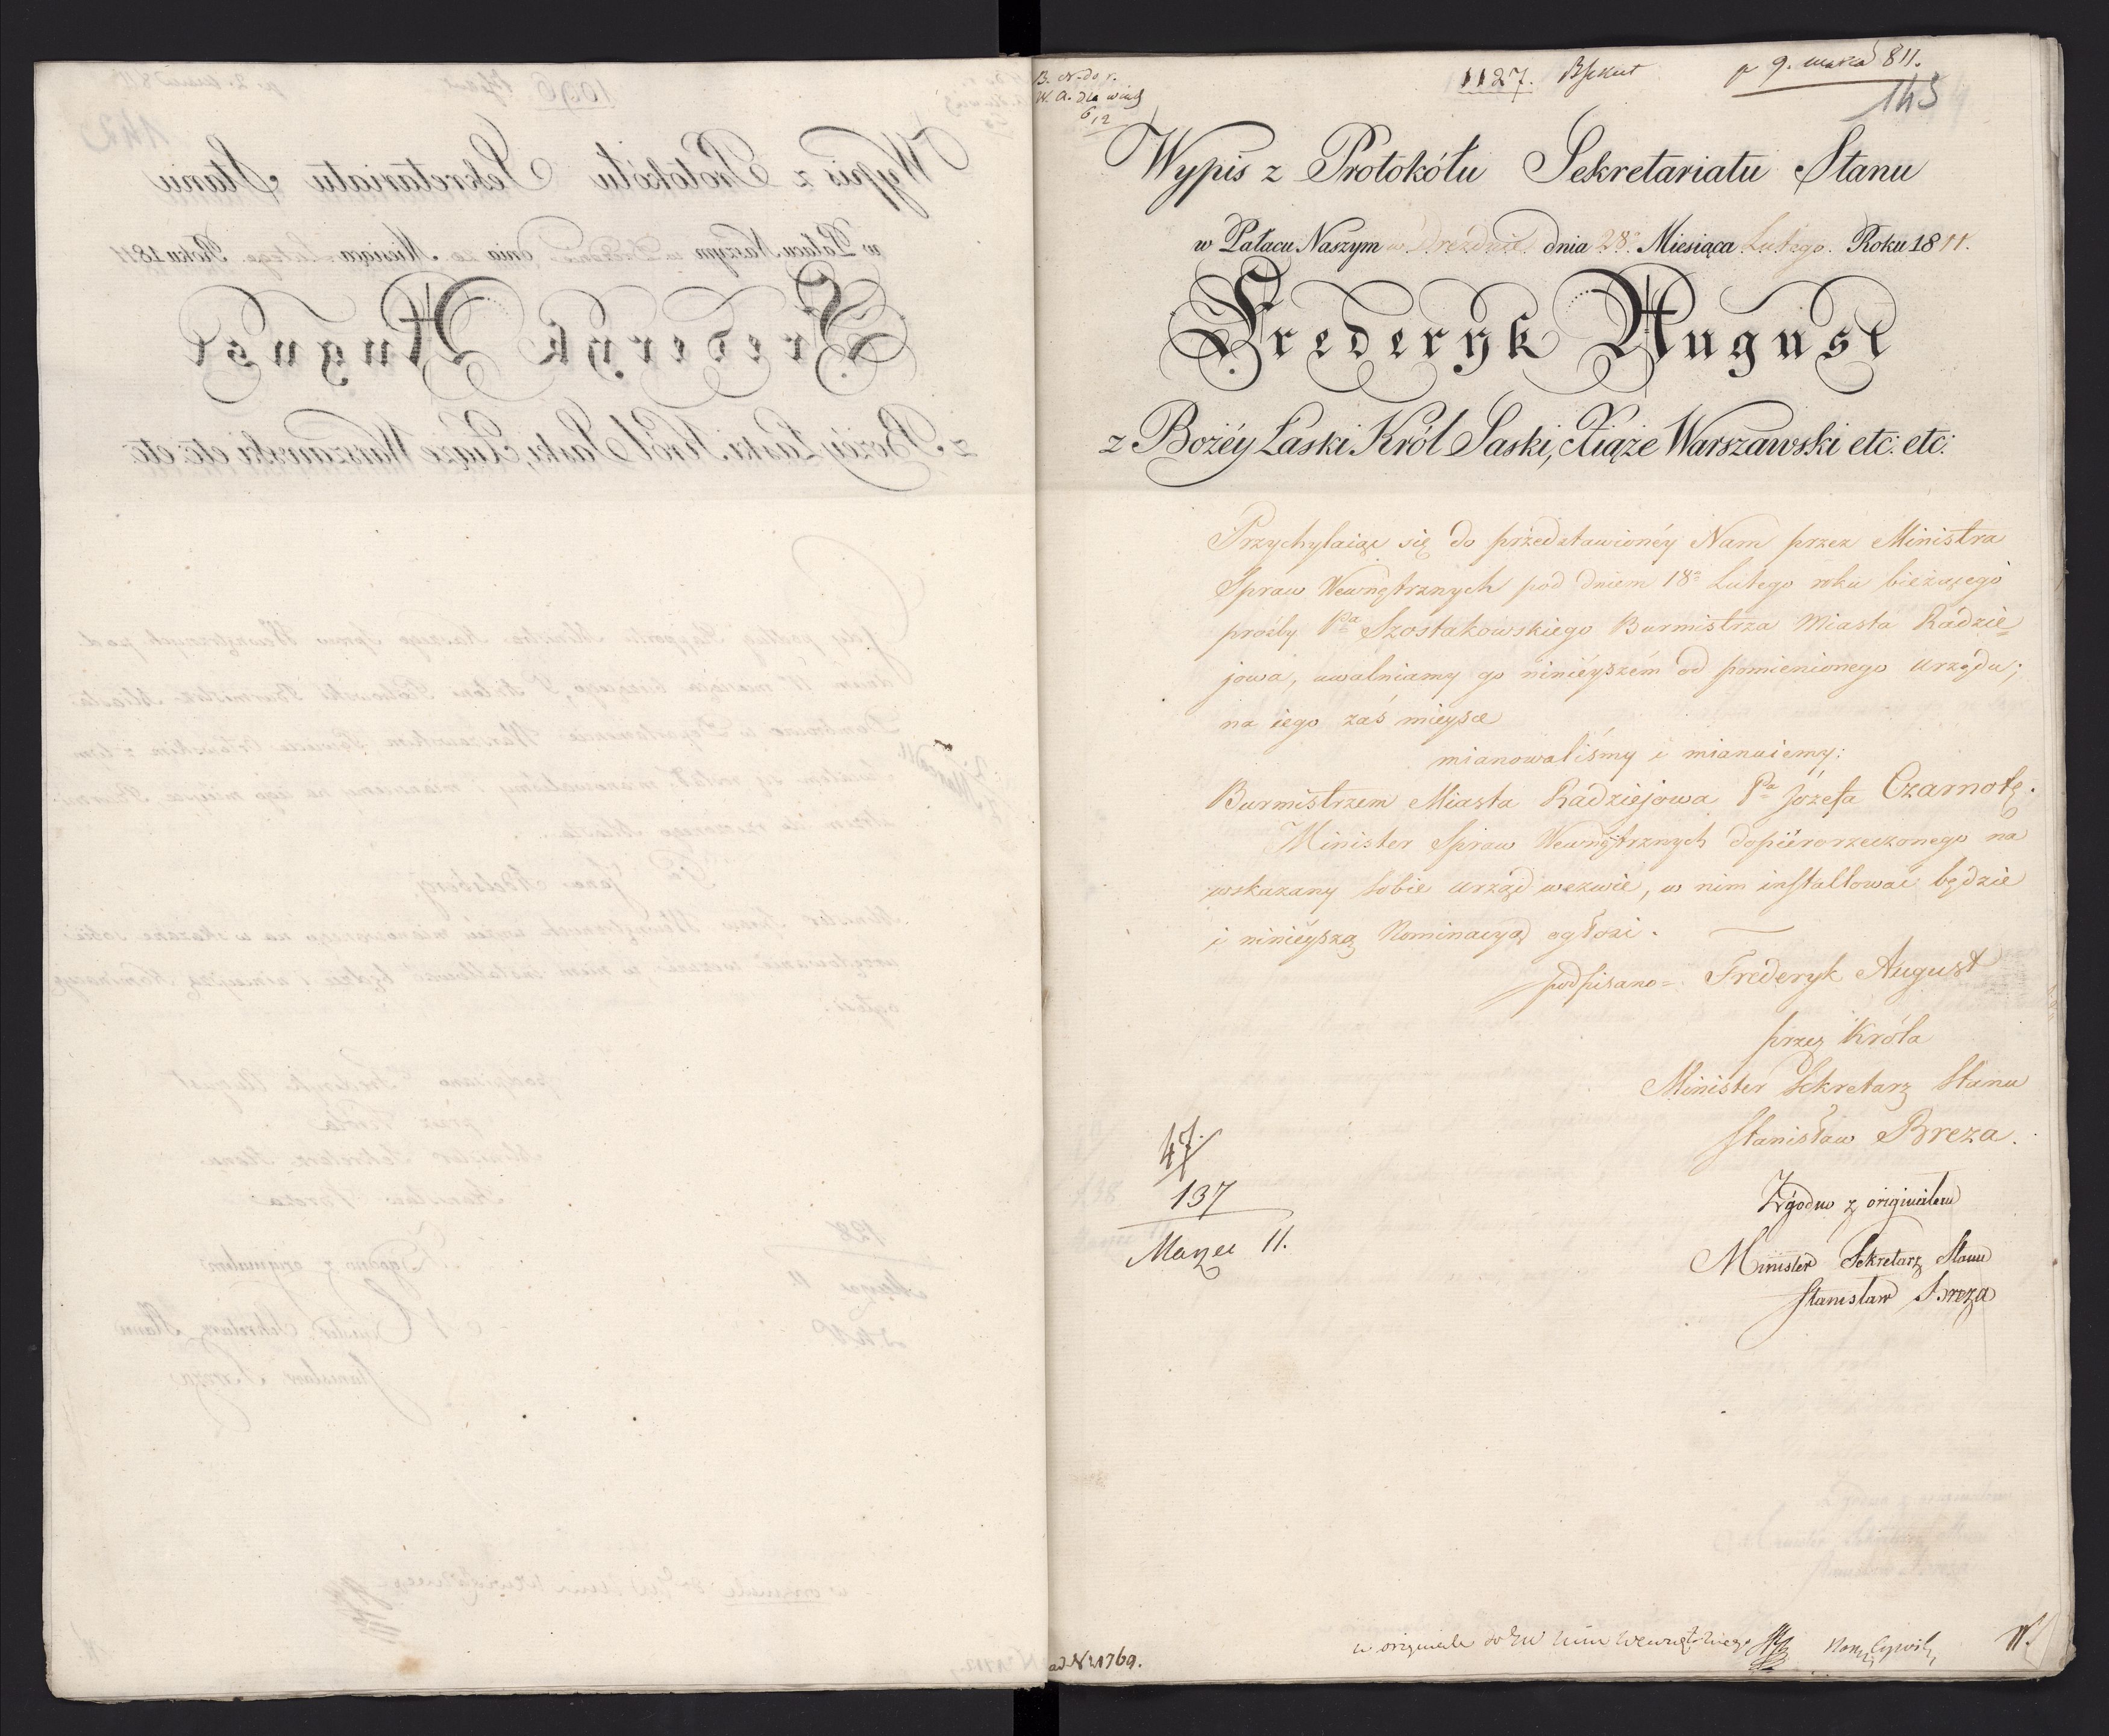 1127.
p 9. marca 811.
145
Wypis z Protokółu Sekretariatu Stanu
w Pałacu Naszym w Dreźnie dnia 28. Miesiąca Lutego. Roku 1811.
Frederyk August
z Bożéy Łaski Król Saski, Xiąże Warszawski etc: etc:
Przychylaiąc się do przedstawionéy Nam przez Ministra
Spraw Wewnętrznych pod dniem 18º Lutego roku bieżącego
prośby Pna Szostakowskiego Burmistrza Miasta Radzie=
jowa, uwalniamy go ninieyszém od pomienionego urzędu;
na iego zaś mieysce
mianowaliśmy i mianuiemy:
Burmistrzem Miasta Radziejowa Pna Józefa Czarnotę.
Minister Spraw Wewnętrznych dopiérorzeczonego na
wskazany sobie urząd wezwie, w nim installować będzie
i ninieyszą Nominacyą ogłosi.
podpisano = Frederyk August
przez Króla
Minister Sekretarz Stanu
Stanisław Breza.
Zgodno z originałem
Minister Sekretarz Stanu
Stanisław Breza
47.
137
Marzec 11.
ad N 1769.
w originale